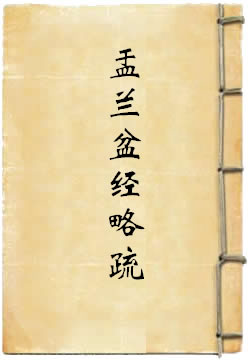 盂兰盆经略疏